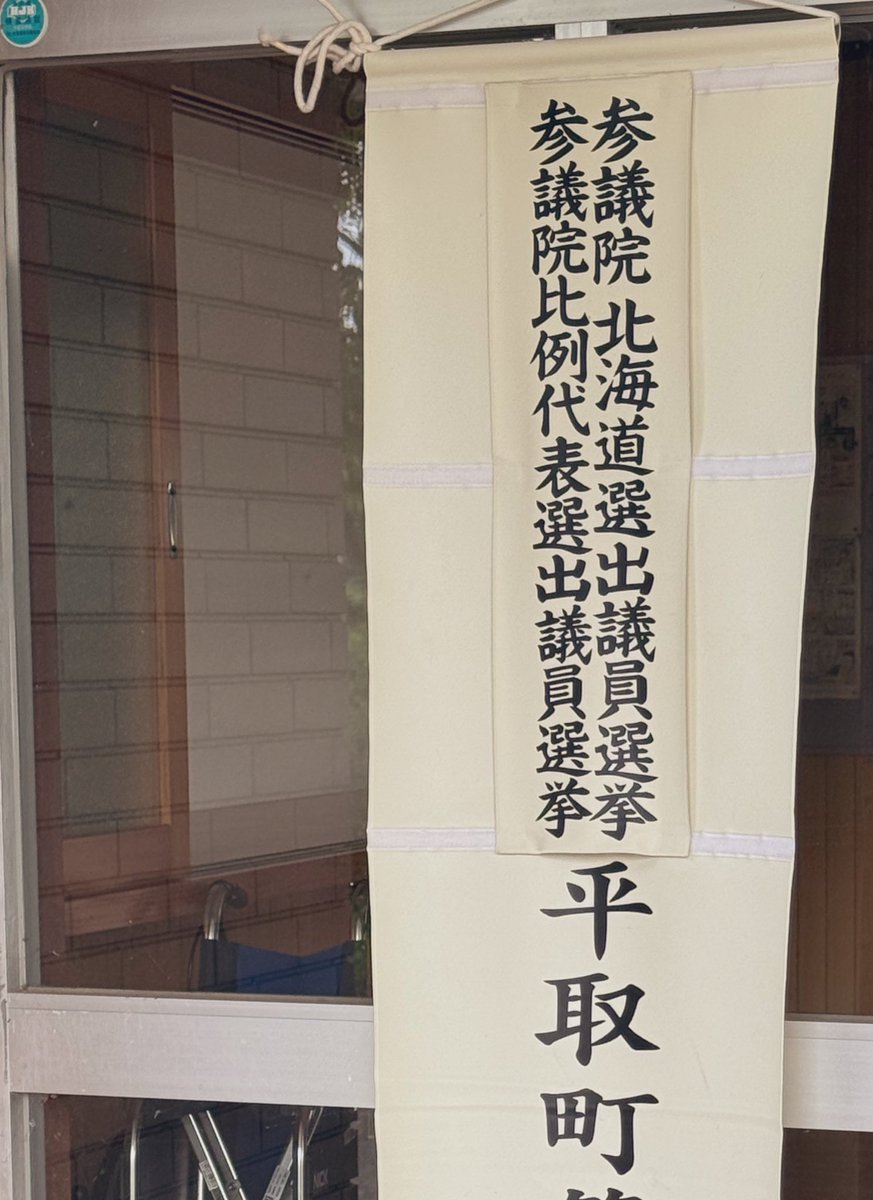 参議院北海道選出議員選挙
参議院比例代表選出議員選挙
平取町第